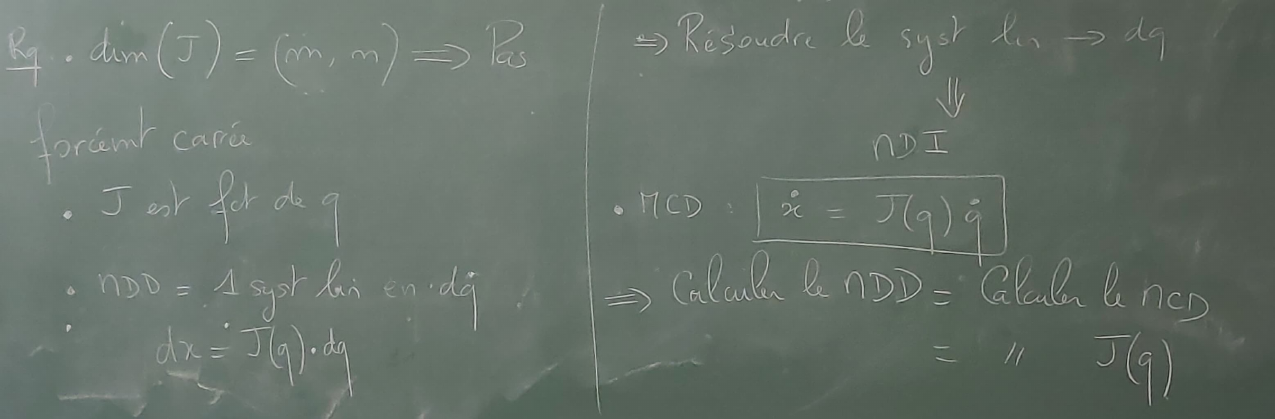 Rq . dim(J) = (m, n) ⟹ Pas
forcémt carrée
. J est fct de q
. MDD = 1 syst lin en dq
dx = J(q).dq
⇒ Résoudre le syst lin → dq
⇓
MDI
. MCD : ẋ = J(q) q̇
⟹ Calculer le MDD = Calculer le MCD
= " J(q)